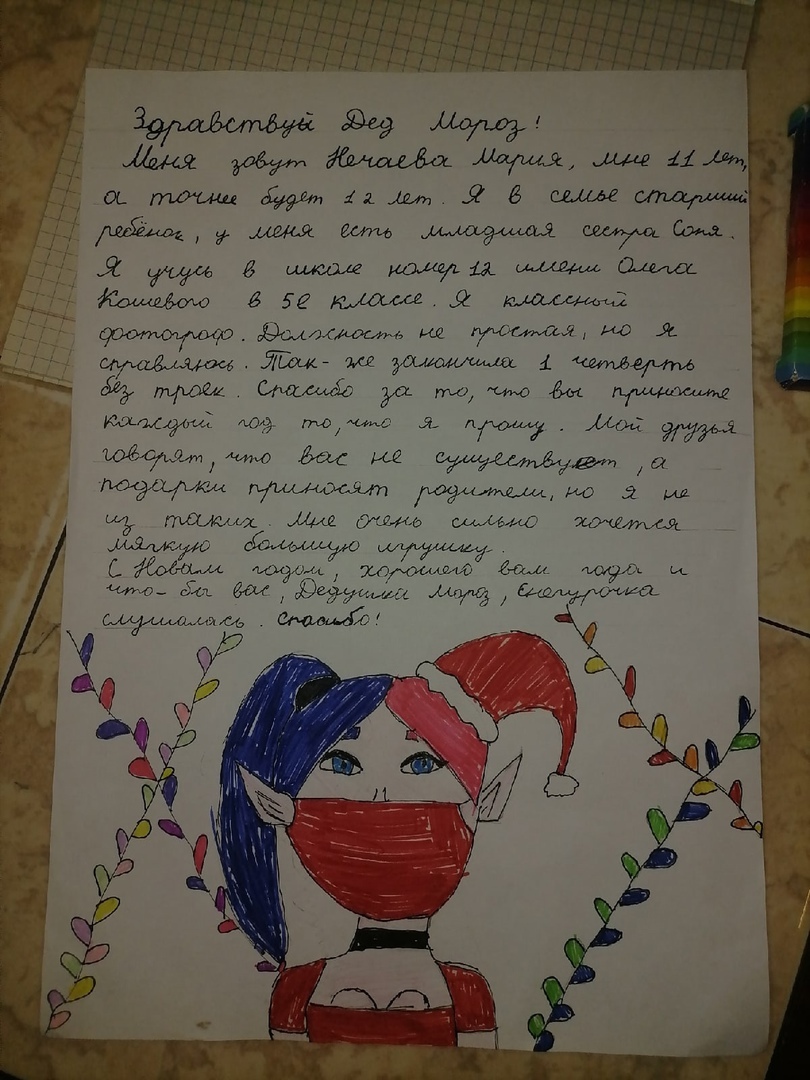 Здравствуй Дед Мороз!
Меня зовут Нечаева Мария, мне 11 лет,
а точнее будет 12 лет. Я в семье старший
ребёнок, у меня есть младшая сестра Соня.
Я учусь в школе номер 12 имени Олега
Кошевого в 5е классе. Я классный
фотограф. Должность не простая, но я
справляюсь. Так-же закончила 1 четверть
без троек. Спасибо за то, что вы приносите
каждый год то, что я прошу. Мой друзья
говорят, что вас не существует, а
подарки приносят родители, но я не
из таких. Мне очень сильно хочется
мягкую большую игрушку.
С Новым годом, хорошего вам года и
что-бы вас, Дедушка Мороз, Снегурочка
слушалась. Спасибо!